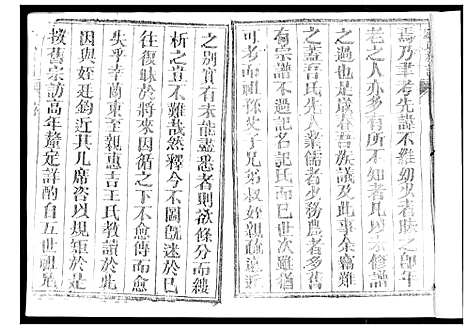 焉乃聿考先譜不維幼少者昧之即年
老之人亦多有所不知
之過也是歲春吾族議及此事余竊難
之蓋吾氏先人業儒者少務農者多舊
有宗譜不過記名記氏而已世次次
可考而於祖孫父子兄弟叔姪親疎遠近
之別實有未能盡悉者則欲條分而縷
析之豈不難哉然釋今不圖旣迷於已
往復昧於將來因循之下不愈傳而愈
失乎辛酉東王親惠吉王氏教讀於此
因與姪廷鈞近其几席咨以規矩於是
按舊宗訪高年釐定詳酌自五世祖